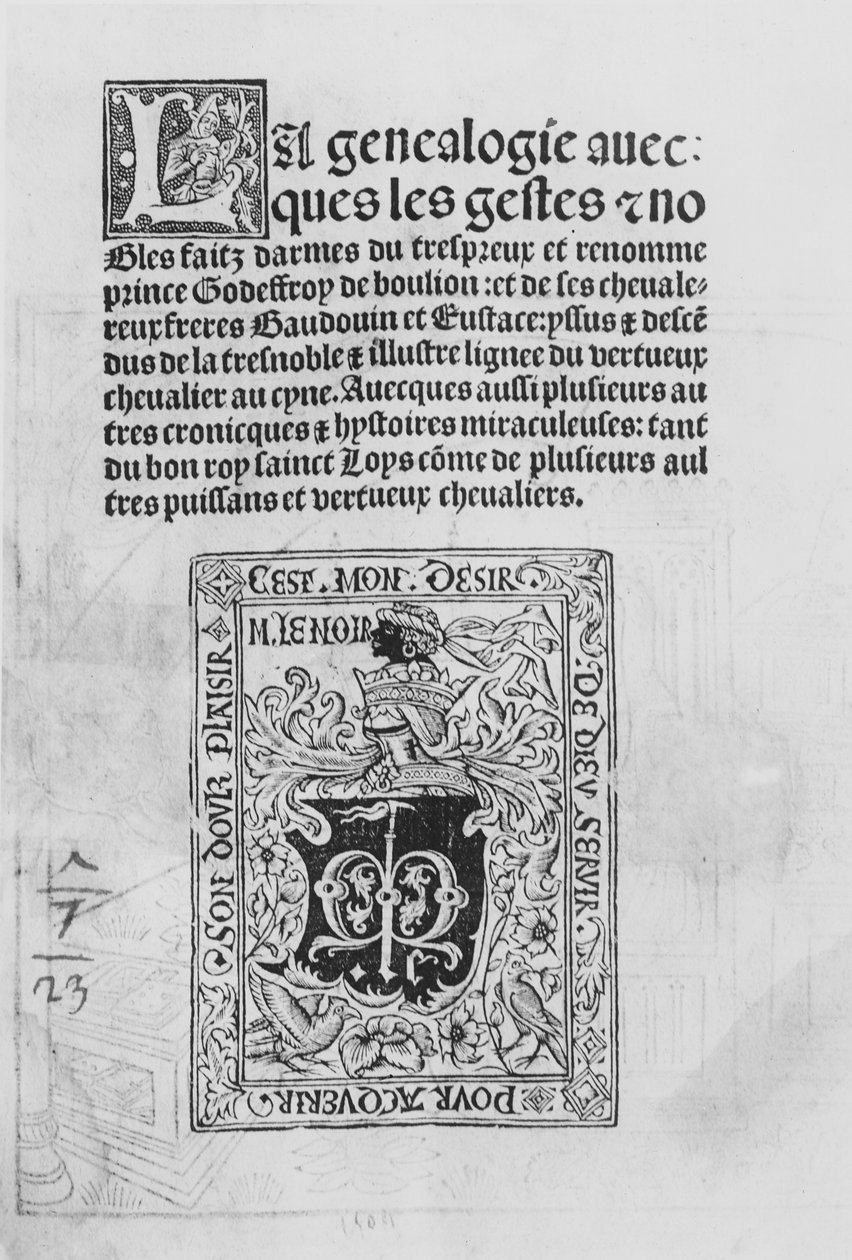 LA genealogie auec:
ques les gestes ⁊ no
Bles faitz darmes du trespreux et renomme
prince Godeffroy de boulion :et de ses cheuale⸗
reux freres Baudouin et Eustace:yssus ⁊ descē
dus de la tresnoble ⁊ illustre lignee du vertueux
cheualier au cyne. Auecques aussi plusieurs au
tres cronicques ⁊ hystoires miraculeuses: tant
du bon roy sainct Loys cōme de plusieurs aul
tres puissans et vertueux cheualiers.
CEST . MON . DESIR
DE DIEV SERVIR
POVR ACQVERIR
SON DOVLR PLAISIR
M. LE NOIR
7
23